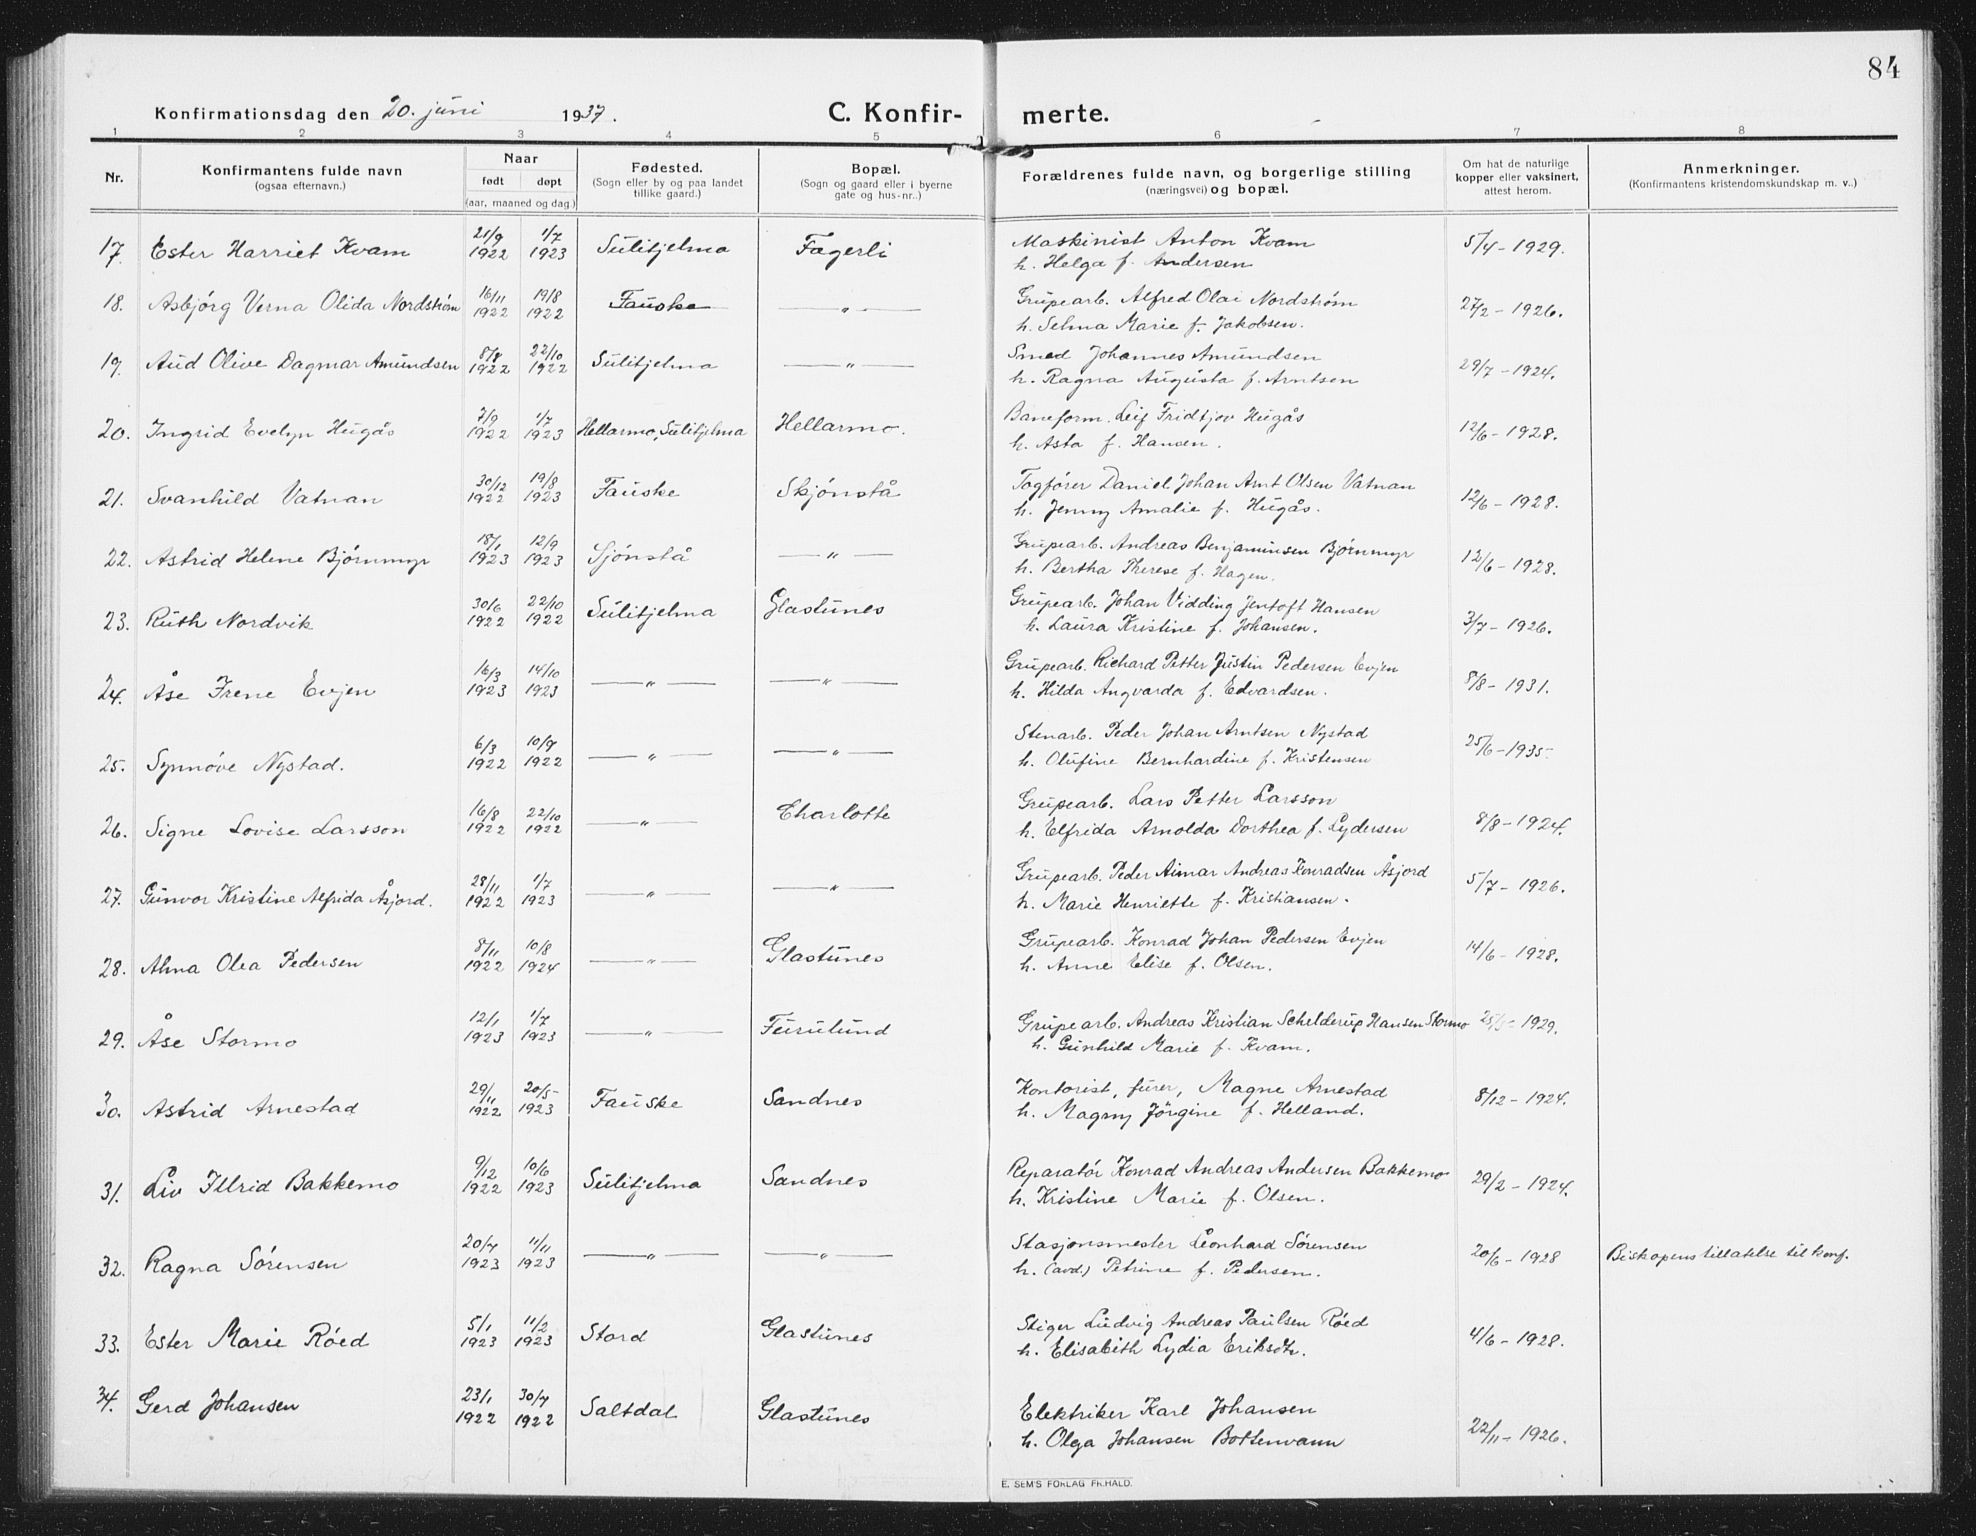 84
Konfirmationsdag den 20. juni 1937.
C. Konfir-merte.
1 2 3 4 5 6 7 8
Nr.
Konfirmantens fulde navn
(ogsaa efternavn.)
Naar
født døpt
(aar, maaned og dag.)
Fødested.
(Sogn eller by og paa landet
tillike gaard.)
Bopæl.
(Sogn og gaard eller i byerne
gate og hus-nr..)
Forældrenes fulde navn, og borgerlige stilling
(næringsvei) og bopæl.
Om hat de naturlige
kopper eller vaksinert,
attest herom.
Anmerkninger.
(Konfirmantens kristendomskundskap m. v.,)
17. Ester Harriet Kvam 21/9 1922 1/7 1923 Sulitjelma Fagerli Maskinist Anton Kvam 5/4 - 1929.
h. Helga f. Andersen
18. Asbjørg Verna Olida Nordstrøm 16/11 1922 19/8 1922 Fauske —"— Grupearb. Alfred Olai Nordstrøm 27/2 - 1926.
h. Selma Marie f. Jakobsen.
19. Aud Olive Dagmar Amundsen 8/8 1922 22/10 1922 Sulitjelma —"— Smed Johannes Amundsen 29/7 - 1924.
h. Ragna Augusta f. Arntsen
20. Ingrid Evelyn Hugås 7/9 1922 1/7 1923 Hellarmo, Sulitjelma Hellarmo. Baneform. Leif Fridtjov Hugås 12/6 - 1928.
h. Asta f. Hansen.
21. Svanhild Vatnan 30/12 1922 19/8 1923 Fauske Skjønstå Togfører Daniel Johan Arnt Olsen Vatnan 12/6 - 1928.
h. Jenny Amalie f. Hugås.
22. Astrid Helene Bjørnmyr 18/1 1923 12/9 1923 Sjønstå —"— Grupearb. Andreas Benjaminsen Bjørnmyr 12/6 - 1928.
h. Bertha Therese f. Hagen.
23. Ruth Nordvik 30/6 1922 22/10 1922 Sulitjelma Glastunes Grupearb. Johan Vidding Jentoft Hansen 3/7 - 1926.
h. Laura Kristine f. Johansen.
24. Åse Irene Evjen 16/3 1923 14/10 1923 —"— —"— Grupearb. Richard Petter Justin Pedersen Evjen 8/8 - 1931.
h. Hilda Angvarda f. Edvardsen.
25. Synnøve Nystad. 6/3 1922 10/9 1922 —"— —"— Stenarb. Peder Johan Arntsen Nystad 25/6 - 1935
h. Olufine Bernhardine f. Kristensen
26. Signe Lovise Larsson 16/8 1922 22/10 1922 —"— Charlotte Grupearb. Lars Petter Larsson 8/8 - 1924.
h. Elfrida Arnolda Dorthea f. Lydersen
27. Gunvor Kristine Alfrida Åsjord. 28/11 1922 1/7 1923 —"— —"— Grupearb. Peder Aimar Andreas Konradsen Åsjord 5/7 - 1926.
h. Marie Henriette f. Kristiansen.
28. Alma Olea Pedersen 8/11 1922 10/8 1924 —"— Glastunes Grupearb. Konrad Johan Pedersen Evjen 14/6 - 1928.
h. Anne Elise f. Olsen.
29. Åse Stormo 12/1 1923 1/7 1923 —"— Furulund Grupearb. Andreas Kristian Schelderup Hansen Stormo - 1929.
h. Gunhild Marie f. Kvam.
30. Astrid Arnestad 29/11 1922 20/5 1923 Fauske Sandnes Kontorist, furer, Magne Arnestad 8/12 - 1924.
h. Magny Jørgine f. Helland.
31. Liv Illrid Bakkemo 9/12 1922 10/6 1923 Sulitjelma Sandnes Reparatør Konrad Andreas Andersen Bakkemo 29/2 - 1924.
h. Kristine Marie f. Olsen.
32. Ragna Sørensen 20/7 1923 11/11 1923 —"— —"— Stasjonsmester Leonhard Sørensen 20/6 - 1928 Biskopens tillatelse til konf.
h. (avd.) Petrine f. Pedersen.
33. Ester Marie Røed 5/1 1923 11/2 1923 Stord Glastunes Stiger Ludvig Andreas Paulsen Røed 4/6 - 1928.
h. Elisabeth Lydia Eriksdtr.
34. Gerd Johansen 23/1 1922 30/7 1922 Saltdal Glastunes Elektriker Karl Johansen 22/11 - 1926.
h. Olga Johansen Bottenvann
E. SEM'S FORLAG FR.HALD.